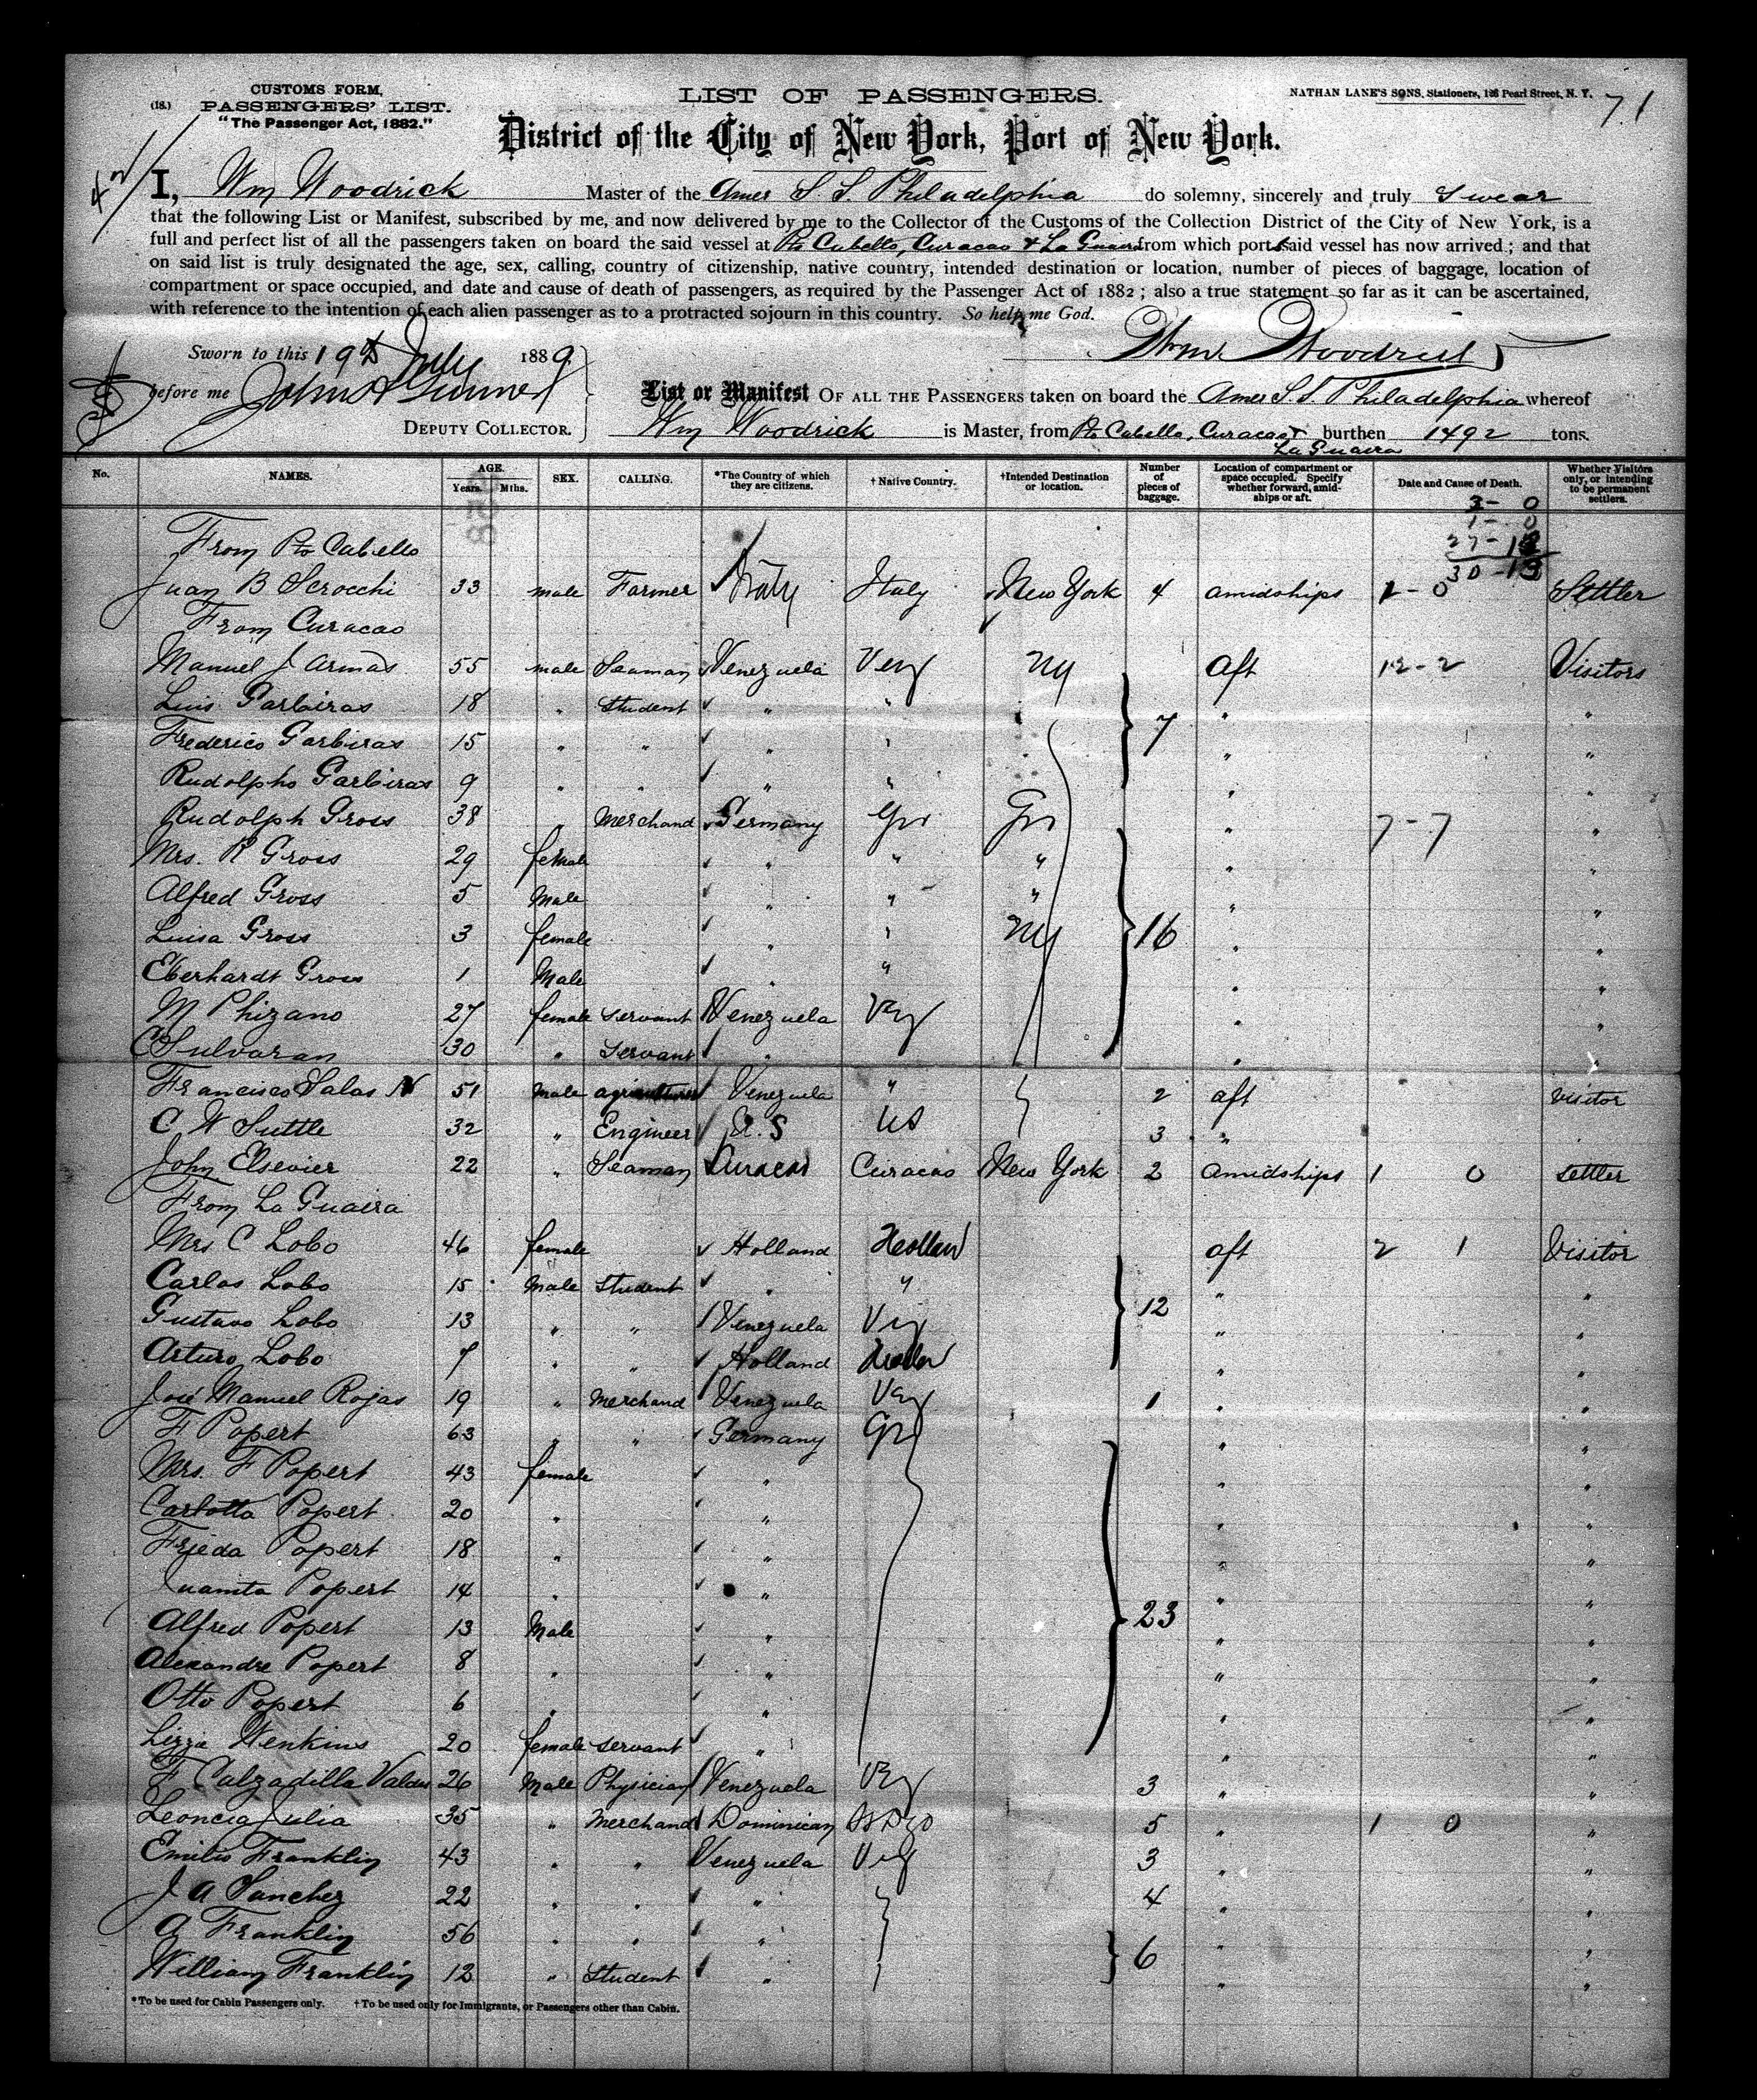 (18.) CUSTOMS FORM,
PASSENGERS' LIST.
"The Passenger Act, 1882."
LIST OF PASSENGERS.
NATHAN LANE'S SONS, Stationers, 136 Pearl Street, N. Y.
71
District of the City of New York, Port of New York.
42
I, Wm Woodrick Master of the Amer S. S. Philadelphia do solemny, sincerely and truly swear
that the following List or Manifest, subscribed by me, and now delivered by me to the Collector of the Customs of the Collection District of the City of New York, is a
full and perfect list of all the passengers taken on board the said vessel at Pto Cabello, Curacao & La Guaira from which port said vessel has now arrived; and that
on said list is truly designated the age, sex, calling, country of citizenship, native country, intended destination or location, number of pieces of baggage, location of
compartment or space occupied, and date and cause of death of passengers, as required by the Passenger Act of 1882; also a true statement so far as it can be ascertained,
with reference to the intention of each alien passenger as to a protracted sojourn in this country. So help me God.
Sworn to this 19th July 1889
Wm Woodrick
before me John
DEPUTY COLLECTOR.
List or Manifest OF ALL THE PASSENGERS taken on board the Amer S. S. Philadelphia whereof
Wm Woodrick is Master, from Pto Cabello, Curacao & La Guaira burthen 1492 tons.
No. NAMES. AGE. Years. Mths. SEX. CALLING. *The Country of which they are citizens. †Native Country. †Intended Destination or location. Number of pieces of baggage. Location of compartment or space occupied. Specify whether forward, amidships or aft. Date and Cause of Death. Whether Visitors only, or intending to be permanent settlers.
3 - 0
1 - 0
27 - 13
30 - 13
From Pto Cabello
Juan B Serocchi 33 male Farmer Italy Italy New York 4 amidships 1 - 0 Settler
From Curacao
Manuel J Armas 55 male Seaman Venezuela Venz NY aft 12 - 2 Visitors
Luis Garbiras 18 " Student " " " "
Frederico Garbiras 15 " " " " 7 " "
Rudolpho Garbiras 9 " " " " " "
Rudolph Gross 38 " Merchand Germany Gr Gr " 7 - 7 "
Mrs. R Gross 29 female " " " " "
Alfred Gross 5 Male " " " " "
Luisa Gross 3 female " " NY 16 " "
Eberhardt Gross 1 Male " " " "
M Phizano 27 female Servant Venezuela Venz " "
C Sulvaran 30 " Servant " " "
Francisco Salas N 51 male Venezuela " 2 aft visitor
C. W Suttle 32 " Engineer U.S US 3 "
John Elsevier 22 " Seaman Curacao Curacao New York 2 amidships 1 0 settler
From La Guaira
Mrs C Lobo 46 female Holland Holland aft 2 1 Visitor
Carlos Lobo 15 Male Student " " " "
Gustavo Lobo 13 " " Venezuela Venz 12 " "
Arturo Lobo 7 " " Holland Holland " "
José Manuel Rojas 19 " Merchand Venezuela Venz 1 " "
F Popert 63 " " Germany Gr " "
Mrs. F Popert 43 female " " "
Carlotta Popert 20 " " " "
Frieda Popert 18 " " " "
Juanita Popert 14 " " " "
Alfred Popert 13 Male " 23 " "
Alexandre Popert 8 " " " "
Otto Popert 6 " " " "
Lizza Wenkins 20 female servant " " "
F Calzadilla Valdes 26 Male Physician Venezuela Venz 3 " "
Leoncia Julia 35 " Merchand Dominican 5 " 1 0 "
Emilio Franklin 43 " " Venezuela Venz 3 " "
J A Sanchez 22 " " " 4 " "
A Franklin 56 " " " 6 " "
William Franklin 12 " Student " " "
*To be used for Cabin Passengers only. †To be used only for Immigrants, or Passengers other than Cabin.